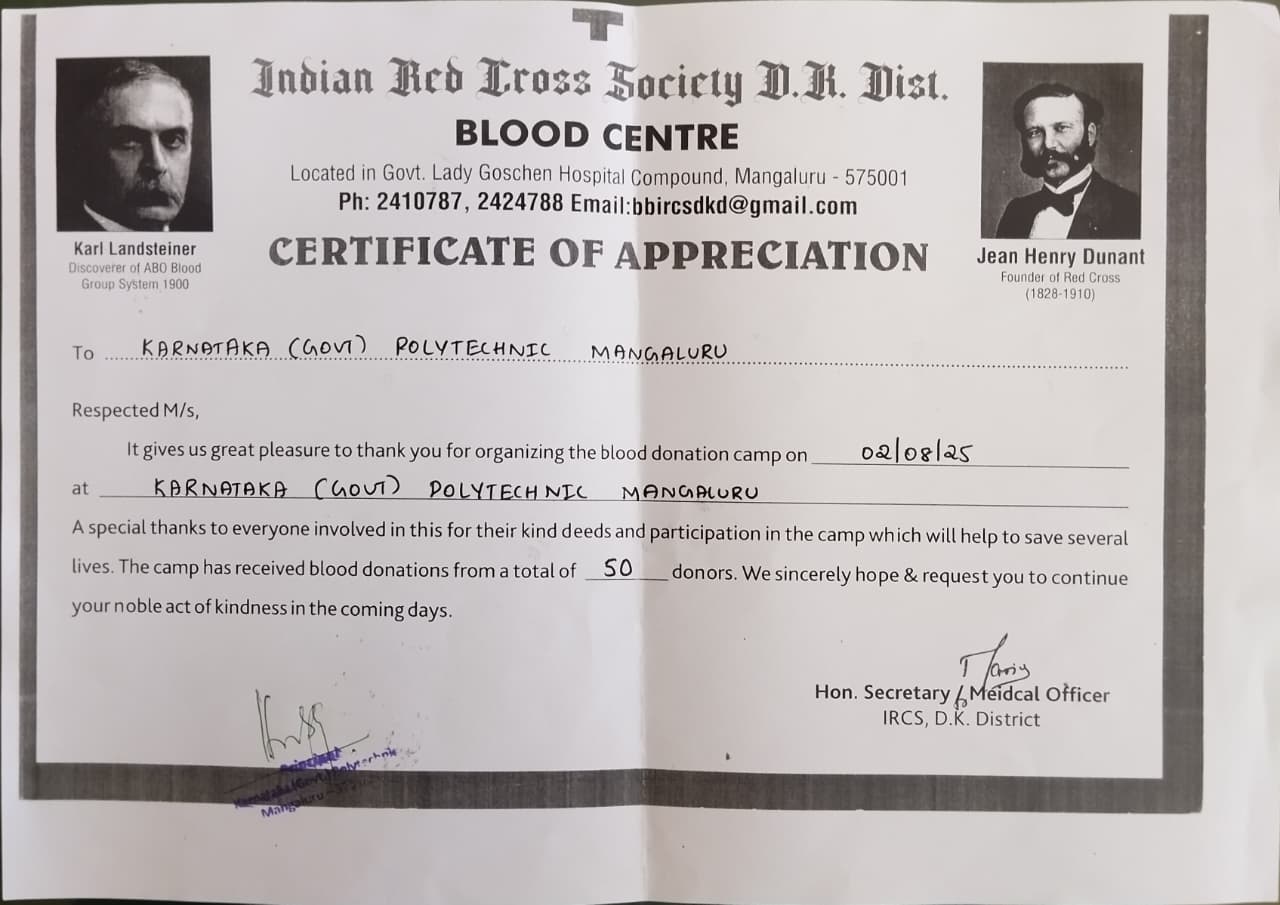 Indian Red Cross Society D.K. Dist.
BLOOD CENTRE
Located in Govt. Lady Goschen Hospital Compound, Mangaluru - 575001
Ph: 2410787, 2424788 Email:bbircsdkd@gmail.com
CERTIFICATE OF APPRECIATION
Karl Landsteiner
Discoverer of ABO Blood
Group System 1900
Jean Henry Dunant
Founder of Red Cross
(1828-1910)
To KARNATAKA (GOVT) POLYTECHNIC MANGALURU
Respected M/s,
It gives us great pleasure to thank you for organizing the blood donation camp on 02/08/25
at KARNATAKA (GOVT) POLYTECHNIC MANGALURU
A special thanks to everyone involved in this for their kind deeds and participation in the camp which will help to save several
lives. The camp has received blood donations from a total of 50 donors. We sincerely hope & request you to continue
your noble act of kindness in the coming days.
Hon. Secretary / Meidcal Officer
IRCS, D.K. District
Principal
Karnataka (Govt.) Polytechnic
Mangaluru